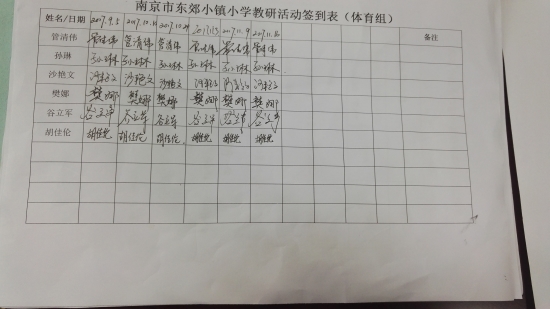 南京市东郊小镇小学教研活动签到表（体育组）
姓名/日期 2017.9.5 2017.10.11 2017.10.24 2017.11.9 备注
管清伟 管清伟 管清伟 管清伟 管清伟 管清伟 管清伟
孙琳 孙琳 孙琳 孙琳 孙琳 孙琳 孙琳
沙艳文 沙艳文 沙艳文 沙艳文 沙艳文 沙艳文
樊娜 樊娜 樊娜 樊娜 樊娜 樊娜 樊娜
谷立军 谷立军 谷立军 谷立军 谷立军 谷立军 谷立军
胡佳伦 胡佳伦 胡佳伦 胡佳伦 胡佳伦 胡佳伦 胡佳伦